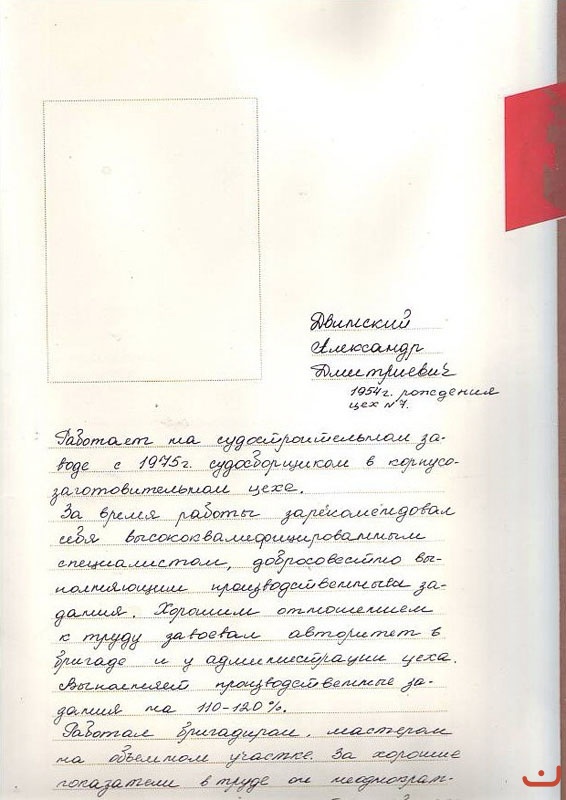 Двинский
Александр
Дмитриевич
1954г. рождения
цех №7.
Работает на судостроительном за-
воде с 1975г. судосборщиком в корпусо-
заготовительном цехе.
За время работы зарекомендовал
себя высококвалифицированным
специалистом, добросовестно вы-
полняющим производственные за-
дания. Хорошим отношением
к труду завоевал авторитет в
бригаде и у администрации цеха.
Выполняет производственные за-
дания на 110-120%.
Работал бригадиром, мастером
на объемном участке. За хорошие
показатели в труде он неоднократ-